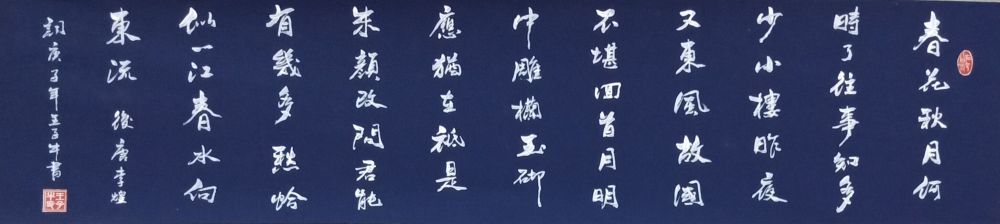 春花秋月何
時了往事知多
少小樓昨夜
又東風故國
不堪回首月明
中雕欄玉砌
應猶在祗是
朱顏改問君能
有幾多愁恰
似一江春水向
東流 後唐李煜
詞庚子年王子牛書